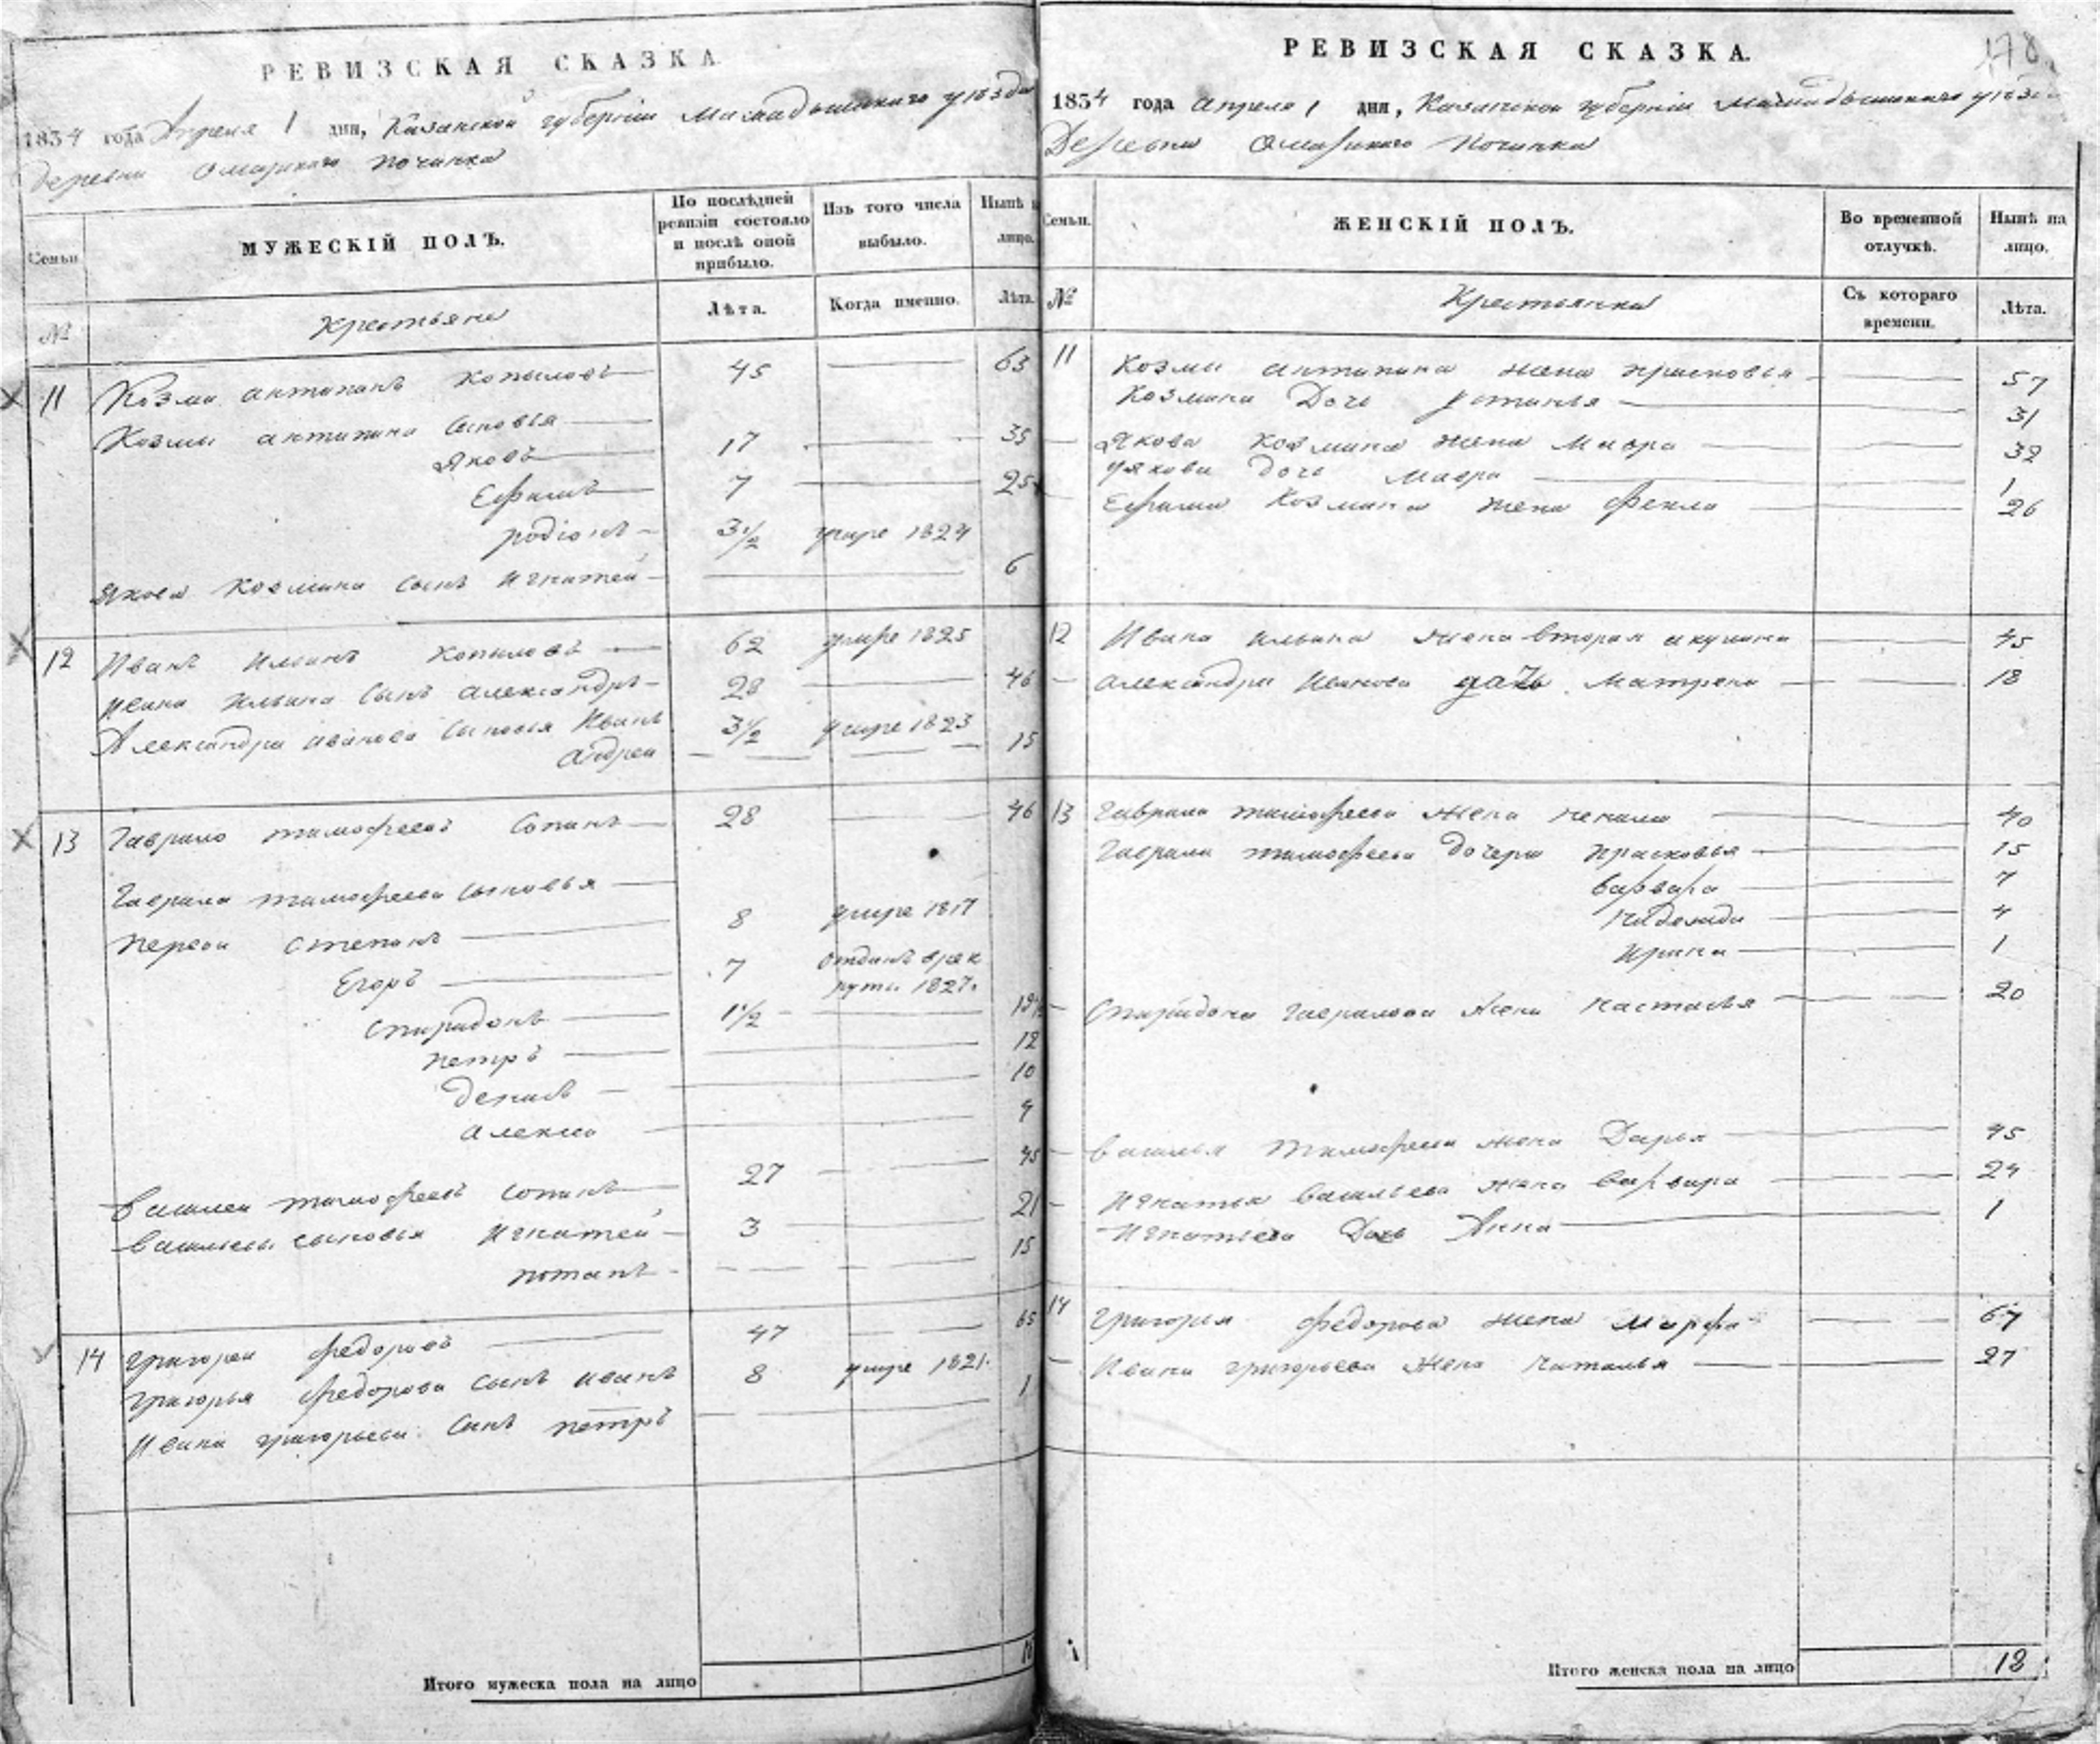 РЕВИЗСКАЯ СКАЗКА
1834 года Апреля 1 дня, Казанской губернiи Мамадышскаго уѣзда
деревни Омарскаго починка
Семьи
МУЖЕСКIЙ ПОЛЪ.
По послѣдней ревизiи состояло и послѣ оной прибыло.
Изъ того числа выбыло.
Нынѣ на лицо.
№
Крестьяне
Лѣта.
Когда именно.
Лѣта.
11 Козма антипинъ Копыловъ 45 63
Козмы антипина сыновья
Яковъ 17 35
Ефимъ 7 25
родiонъ 3½ умре 1824
Якова Козмина сынъ игнатей 6
12 Иванъ Ильинъ Копыловъ 62 умре 1825
ивана Ильина сынъ александръ 28 46
Александра иванова сыновья Иванъ 3½ умре 1823
андреи 15
13 Гаврило тимофеевъ Сопинъ 28 46
Гаврила тимофеева сыновья
перваи степанъ 8 умре 1817
Егоръ 7 отданъ врек
руты 1827.
спиридонъ 1½ 19½
петръ 12
денисъ 10
алексеи 4
василеи тимофеевъ сопинъ 27 45
васильевы сыновья Игнатей 3 21
потапъ 15
14 григореи федоровъ 47 65
григорья федорова сынъ иванъ 8 умре 1821.
Ивана григорьева сынъ петръ 1
Итого мужеска пола на лицо
РЕВИЗСКАЯ СКАЗКА.
178.
1834 года апреля 1 дня, Казанской губернiи Мамадышскаго уѣзда
Деревни Омарскаго Починка
Семьи.
ЖЕНСКIЙ ПОЛЪ.
Во временной отлучкѣ.
Нынѣ на лицо.
№
Крестьянка
Съ котораго времени.
Лѣта.
11 Козмы антипина жена прасковья 57
Козмина Доче устинья 31
Якова козмина жена Мавра 32
Якова доче мавра 1
Ефима Козмина жена фекла 26
12 Ивана ильина жена вторая акулина 45
александра Иванова дачь Матрена 18
13 гаврила тимофеева жена ненила 40
гаврила тимофеева дочери прасковья 15
варвара 7
1 4
ирина 1
Спиридона гаврилова жена настасья 20
василья тимофеева жена Дарья 45
Игнатья васильева жена варвара 24
Игнатьева Дочь Анна 1
14 григорья федорова жена марфа 67
Ивана григорьева жена наталья 27
Итого женска пола на лицо 18